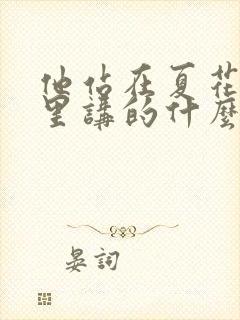 他站在夏花
里講的什麼
晏詞